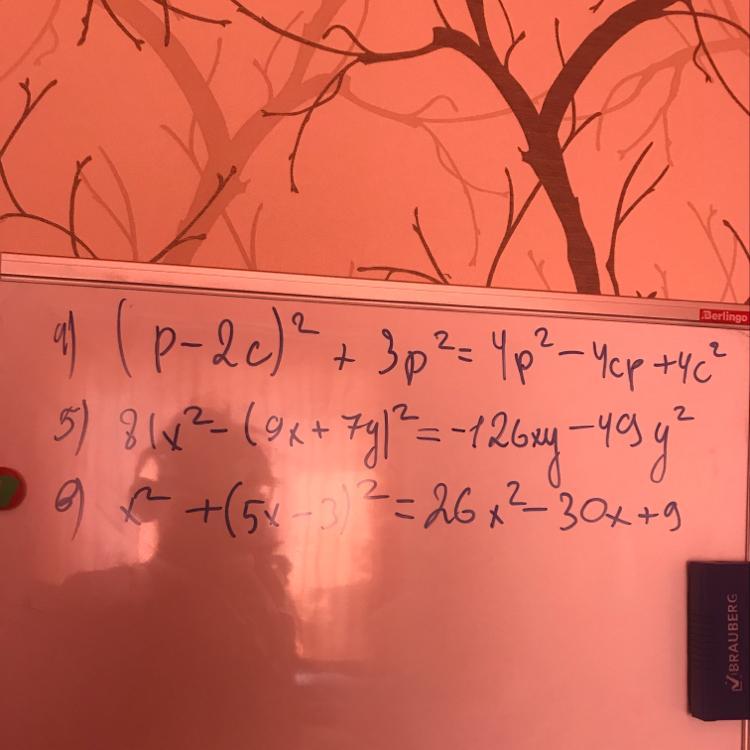 .Berlingo
а) (p-2c)² + 3p² = 4p² - 4cp + 4c²
б) 81x² - (9x + 7y)² = -126xy - 49y²
в) x² + (5x - 3)² = 26x² - 30x + 9
BRAUBERG